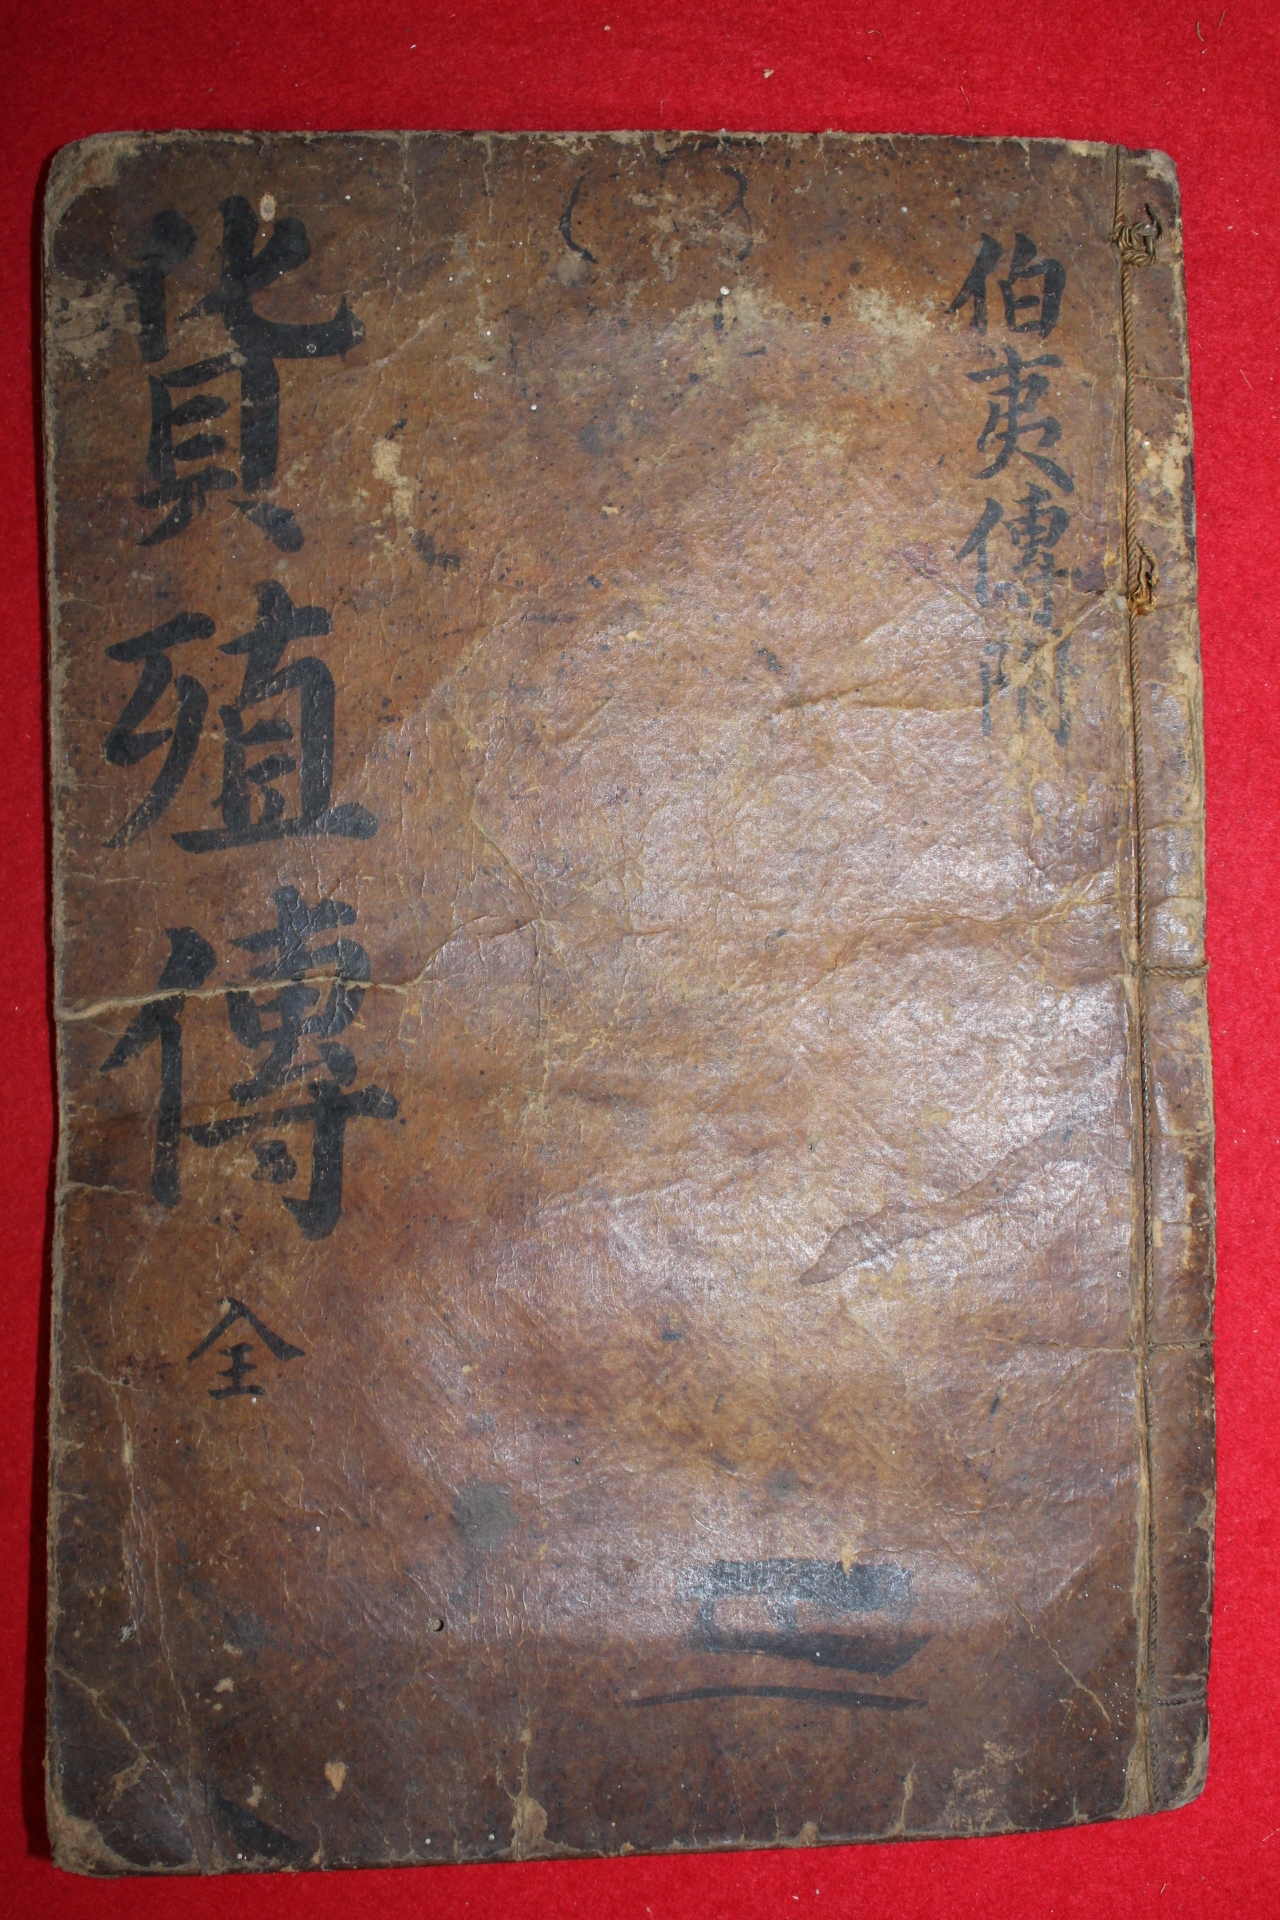 伯夷傳附
貨殖傳 全